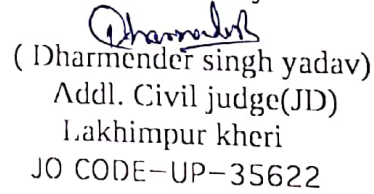 ( Dharmender singh yadav)
Addl. Civil judge(JD)
Lakhimpur kheri
JO CODE-UP-35622